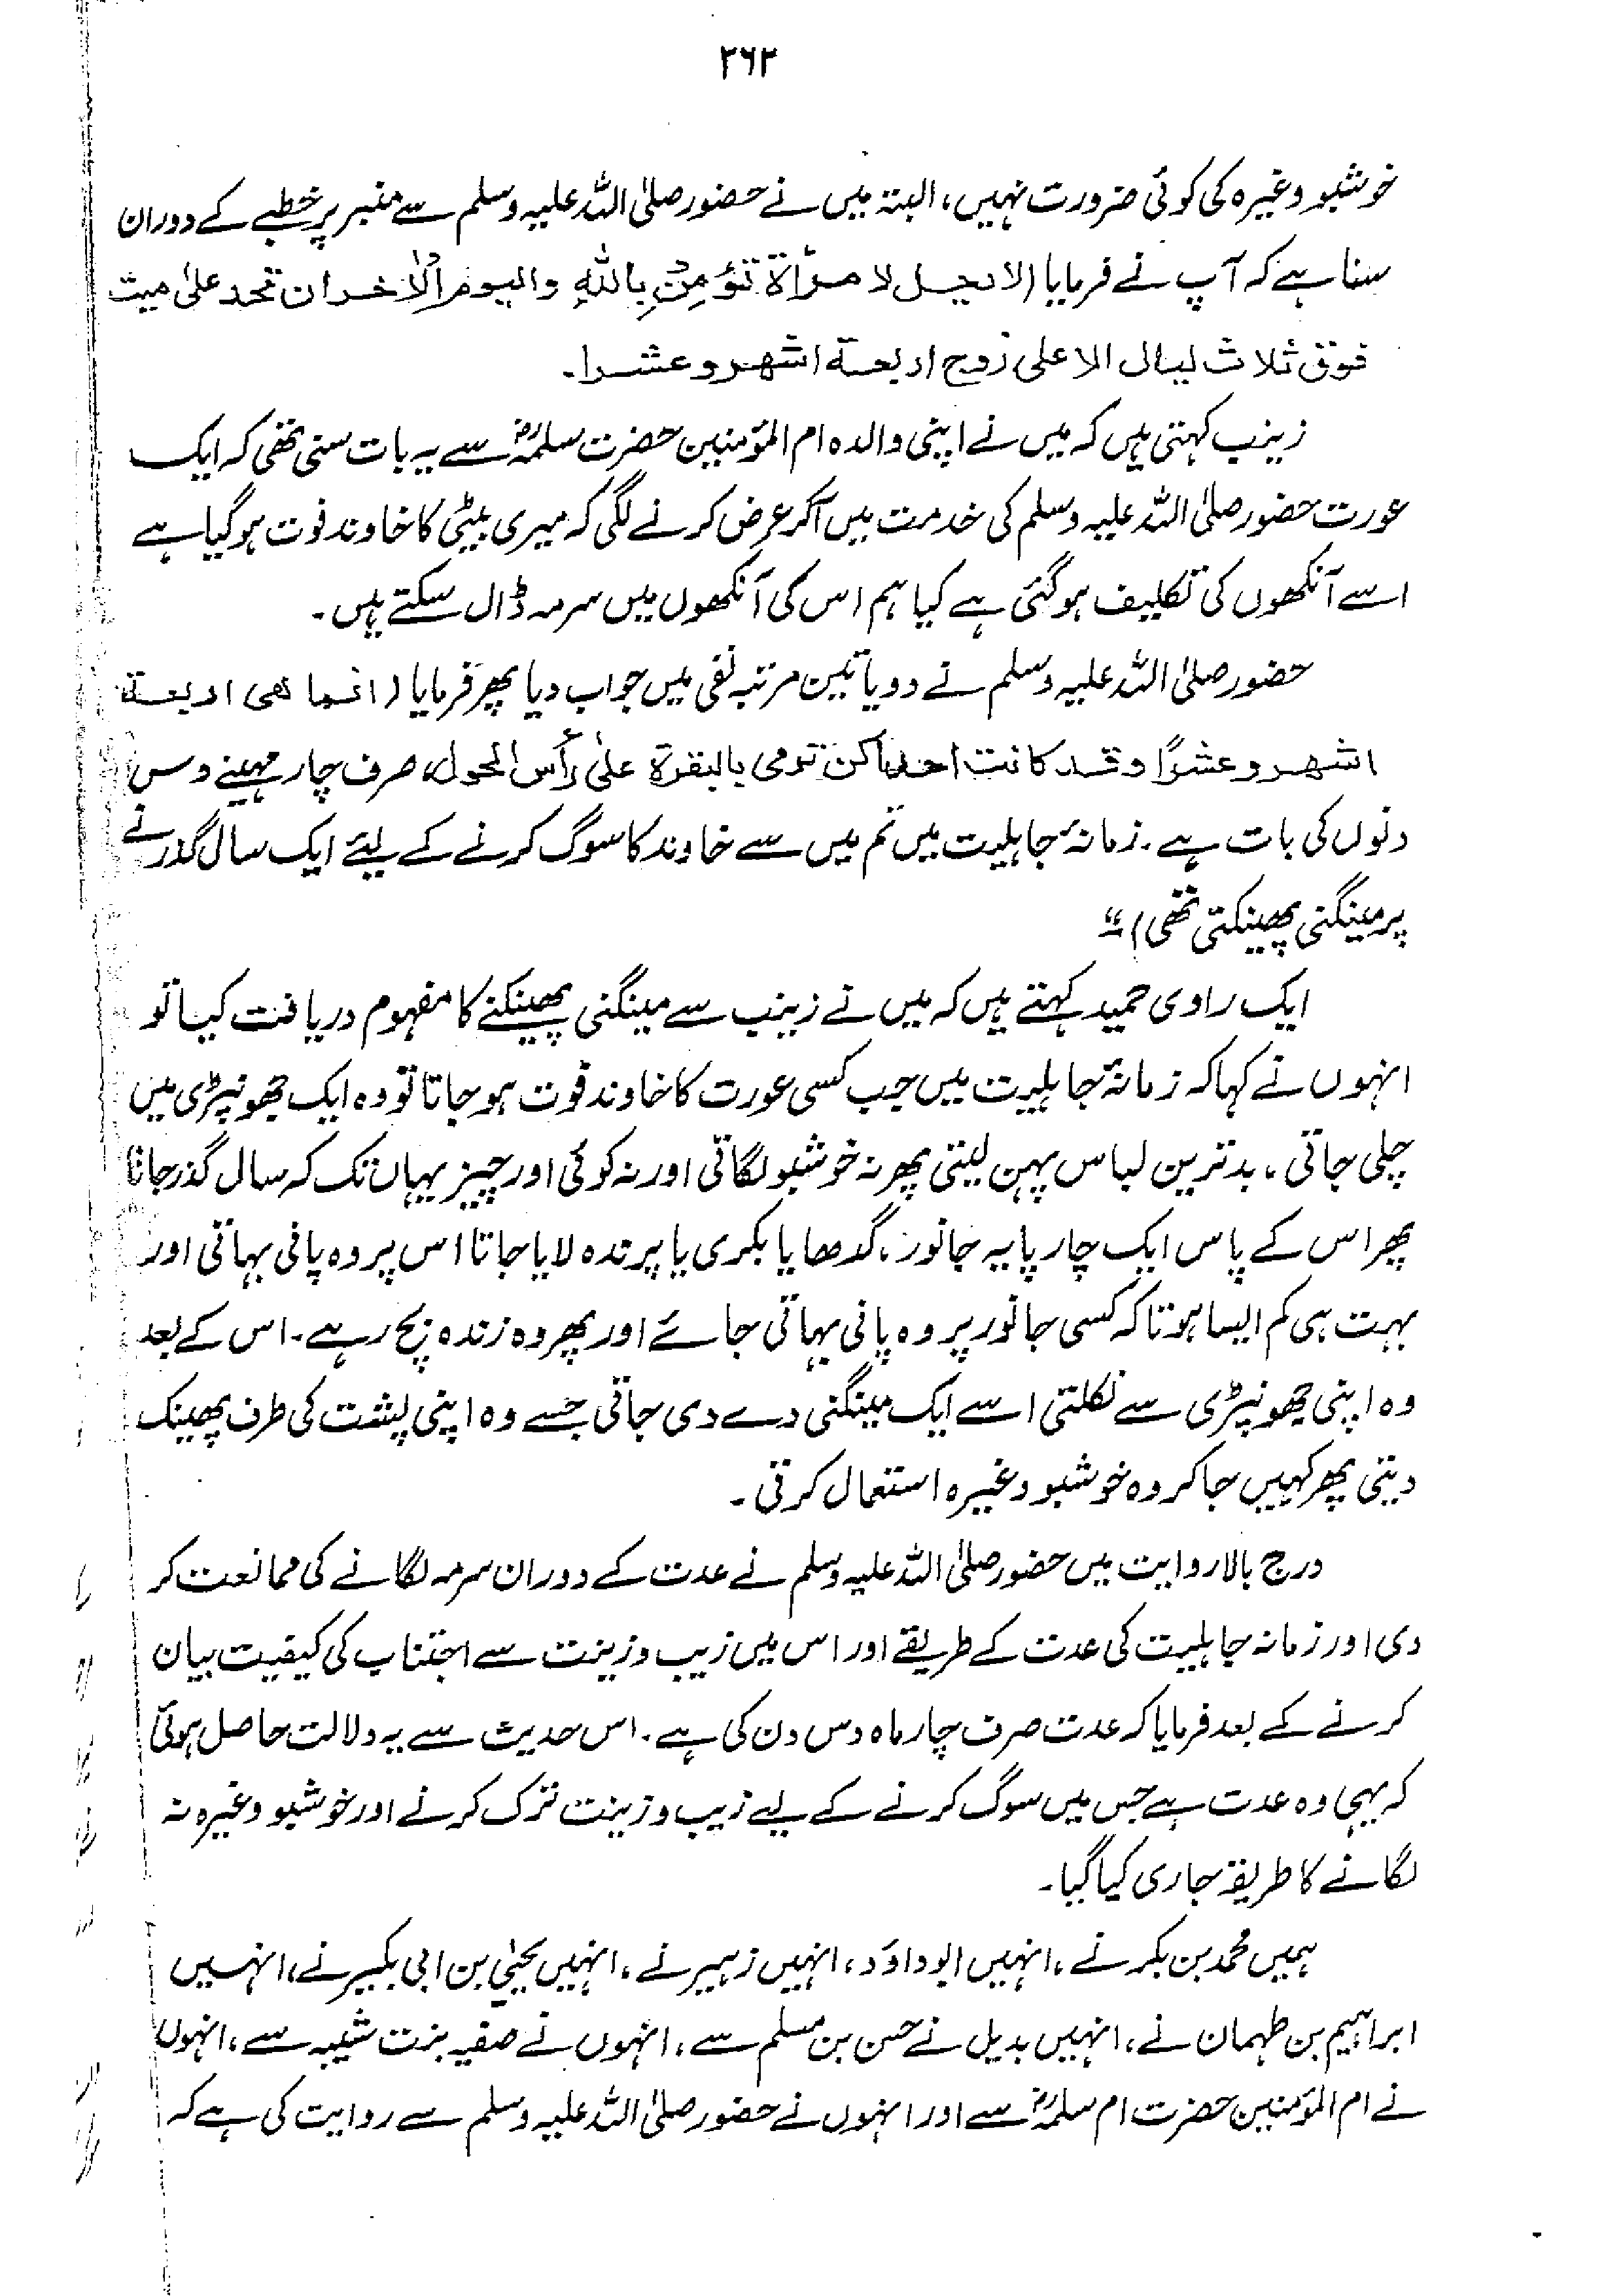 ۲۶۲
خوشبو وغیرہ کی کوئی ضرورت نہیں، البتہ میں نے حضور صلی اللہ علیہ وسلم سے منبر پر خطبے کے دوران
سنا ہے کہ آپ نے فرمایا (لا یحل لامرأۃ تؤمن باللہ والیوم الاٰخر ان تحد علی میت
فوق ثلاث لیال الا علی زوج اربعۃ اشھر وعشرا۔
زینب کہتی ہیں کہ میں نے اپنی والدہ ام المؤمنین حضرت سلمہؓ سے یہ بات سنی تھی کہ ایک
عورت حضور صلی اللہ علیہ وسلم کی خدمت میں آکر عرض کرنے لگی کہ میری بیٹی کا خاوند فوت ہو گیا ہے
اسے آنکھوں کی تکلیف ہو گئی ہے کیا ہم اس کی آنکھوں میں سرمہ ڈال سکتے ہیں۔
حضور صلی اللہ علیہ وسلم نے دو یا تین مرتبہ نفی میں جواب دیا پھر فرمایا (انما ھی اربعۃ
اشھر وعشرًا وقد کانت احداکن ترمی بالبقرۃ علیٰ رأس الحول، صرف چار مہینے دس
دنوں کی بات ہے۔ زمانۂ جاہلیت میں تم میں سے خاوند کا سوگ کرنے کے لیئے ایک سال گذرنے
پر مینگنی پھینکتی تھی)"
ایک راوی حمید کہتے ہیں کہ میں نے زینب سے مینگنی پھینکنے کا مفہوم دریافت کیا تو
انہوں نے کہا کہ زمانۂ جاہلیت میں جب کسی عورت کا خاوند فوت ہو جاتا تو وہ ایک جھونپڑی میں
چلی جاتی، بدترین لباس پہن لیتی پھر نہ خوشبو لگاتی اور نہ کوئی اور چیز یہاں تک کہ سال گذر جاتا
پھر اس کے پاس ایک چار پایہ جانور، گدھا یا بکری یا پرندہ لایا جاتا اس پر وہ پانی بہاتی اور
بہت ہی کم ایسا ہوتا کہ کسی جانور پر وہ پانی بہاتی جائے اور پھر وہ زندہ بچ رہے۔ اس کے بعد
وہ اپنی جھونپڑی سے نکلتی اسے ایک مینگنی دے دی جاتی جسے وہ اپنی پشت کی طرف پھینک
دیتی پھر کہیں جا کر وہ خوشبو وغیرہ استعمال کرتی۔
درج بالا روایت میں حضور صلی اللہ علیہ وسلم نے عدت کے دوران سرمہ لگانے کی ممانعت کر
دی اور زمانہ جاہلیت کی عدت کے طریقے اور اس میں زیب وزینت سے اجتناب کی کیفیت بیان
کرنے کے بعد فرمایا کہ عدت صرف چار ماہ دس دن کی ہے۔ اس حدیث سے یہ دلالت حاصل ہوئی
کہ یہی وہ عدت ہے جس میں سوگ کرنے کے لیے زیب وزینت ترک کرنے اور خوشبو وغیرہ نہ
لگانے کا طریقہ جاری کیا گیا۔
ہمیں محمد بن بکر نے، انہیں ابوداؤد، انہیں زہیر نے، انہیں یحییٰ بن ابی بکیر نے، انہیں
ابراہیم بن طہمان نے، انہیں بدیل نے حسن بن مسلم سے، انہوں نے صفیہ بنت شیبہ سے، انہوں
نے ام المؤمنین حضرت ام سلمہؓ سے اور انہوں نے حضور صلی اللہ علیہ وسلم سے روایت کی ہے کہ